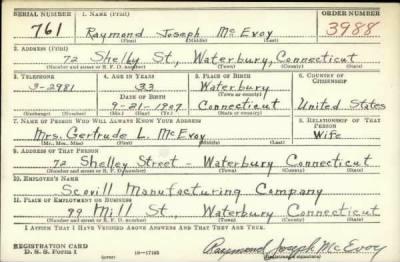 SERIAL NUMBER 1. NAME (Print) ORDER NUMBER
761 Raymond Joseph McEvoy 3988
(First) (Middle) (Last)
2. ADDRESS (Print)
72 Shelby St., Waterbury, Connecticut
(Number and street or R. F. D. number) (Town) (County) (State)
3. TELEPHONE 4. AGE IN YEARS 5. PLACE OF BIRTH 6. COUNTRY OF CITIZENSHIP
3-2981 33 Waterbury
DATE OF BIRTH (Town or county)
9-21-1907 Connecticut United States
(Mo.) (Day) (Yr.) (State or country)
7. NAME OF PERSON WHO WILL ALWAYS KNOW YOUR ADDRESS 8. RELATIONSHIP OF THAT PERSON
Mrs. Gertrude L. McEvoy Wife
(Mr., Mrs., Miss) (First) (Middle) (Last)
9. ADDRESS OF THAT PERSON
72 Shelley Street - Waterbury Connecticut
(Number and street or R. F. D. number) (Town) (County) (State)
10. EMPLOYER'S NAME
Scovill Manufacturing Company
11. PLACE OF EMPLOYMENT OR BUSINESS
99 Mill St., Waterbury Connecticut
(Number and street or R. F. D. number) (Town) (County) (State)
I AFFIRM THAT I HAVE VERIFIED ABOVE ANSWERS AND THAT THEY ARE TRUE.
REGISTRATION CARD
D. S. S. Form 1 (over) 16-17105 Raymond Joseph McEvoy
(Registrant's signature)